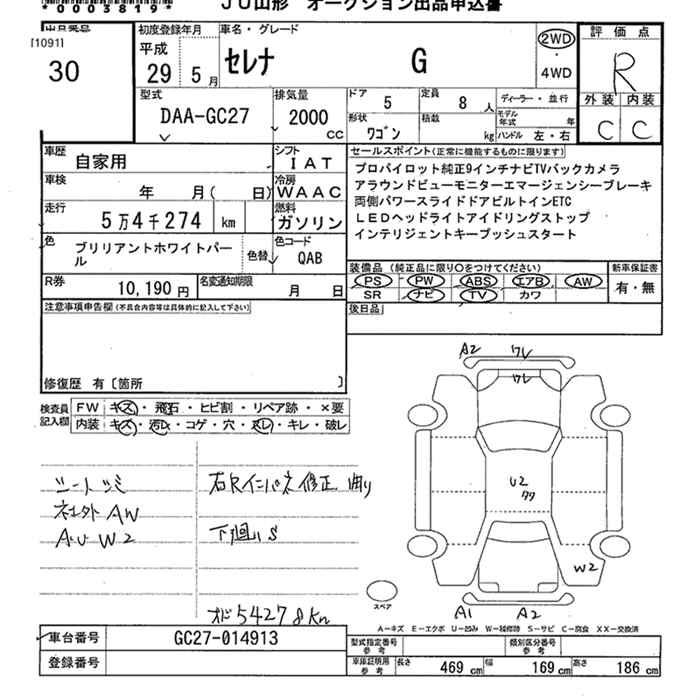 *0003819*
JU山形 オークション出品申込書
出品番号
[1091]
30
初度登録年月
平成
29 5月
車名・グレード
セレナ G
2WD
・
4WD
評価点
R
外装 内装
C C
型式
DAA-GC27
排気量
2000
CC
ドア
5
定員
8 人
ディーラー・並行
形状
ワゴン
積載
kg
モデル年式 年
ハンドル 左・右
車歴
自家用
シフト
IAT
車検
年 月( 日)
冷房
WAAC
走行
5万4千274 km
燃料
ガソリン
色
ブリリアントホワイトパール
色替
色コード
QAB
R券
10,190 円
名変通知期限
月 日
セールスポイント(正常に機能するものに限ります)
プロパイロット純正9インチナビTVバックカメラ
アラウンドビューモニターエマージェンシーブレーキ
両側パワースライドドアビルトインETC
LEDヘッドライトアイドリングストップ
インテリジェントキープッシュスタート
装備品(純正品に限り○をつけてください)
PS PW ABS エアB AW
SR ナビ TV カワ
新車保証書
有・無
後日品
注意事項申告欄(不具合内容等は具体的に記入して下さい)
修復歴 有[箇所 ]
検査員
記入欄
FW キズ・飛石・ヒビ割・リペア跡・×要
内装 キズ・汚れ・コゲ・穴・スレ・キレ・破レ
シートシミ
社外AW
AU W2
右Rインパネ修正 曲り
下廻りS
オド54278Km
A2 ワレ
ワレ
U2
W2
A1 A2
スペア
A-キズ E-エクボ U-凹み W-補修跡 S-サビ C-腐食 XX-交換済
車台番号
GC27-014913
登録番号
型式指定番号
参考
類別区分番号
参考
車庫証明用
参考
長さ
469 cm
幅
169 cm
高さ
186 cm